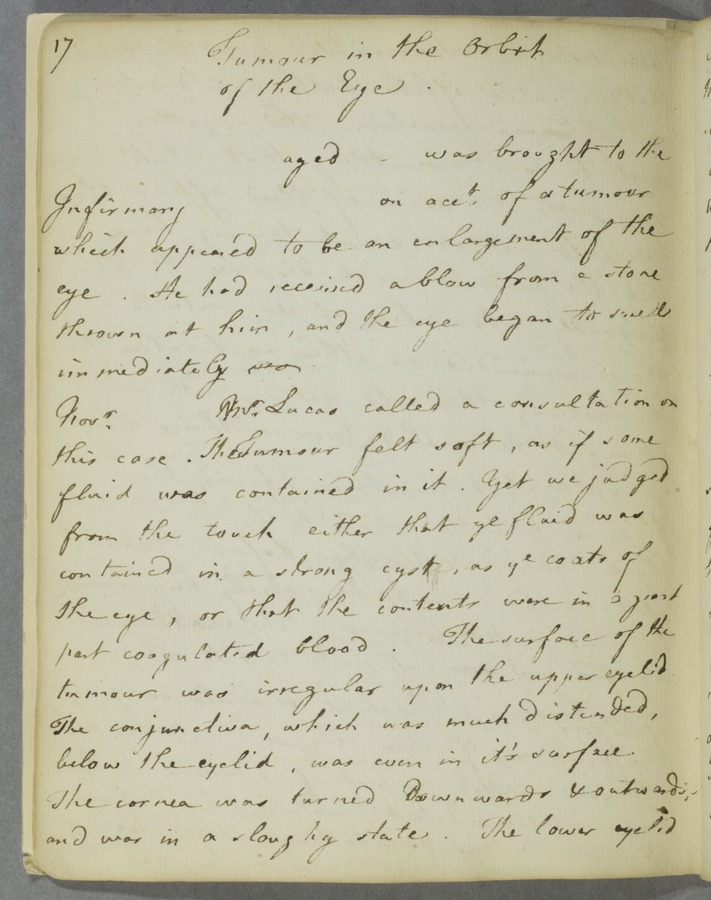 17
Tumour in the Orbit
of the Eye .
aged - was brought to the
Infirmary on acct. of a tumour
which appeared to be an enlargement of the
eye . He had received a blow from a stone
thrown at him , and the eye began to swell
immediately
Novr. Mr. Lucas called a consultation on
this case . The Tumour felt soft , as if some
fluid was contained in it . Yet we judged
from the touch either that ye fluid was
contained in a strong cyst , as ye coats of
the eye , or that the contents were in a great
part coagulated blood . The surface of the
tumour was irregular upon the upper eyelid
The conjunctiva , which was much distended ,
below the eyelid , was even in it's surface
The cornea was turned Downwards & outwards ,
and was in a sloughy state . The lower eyelid